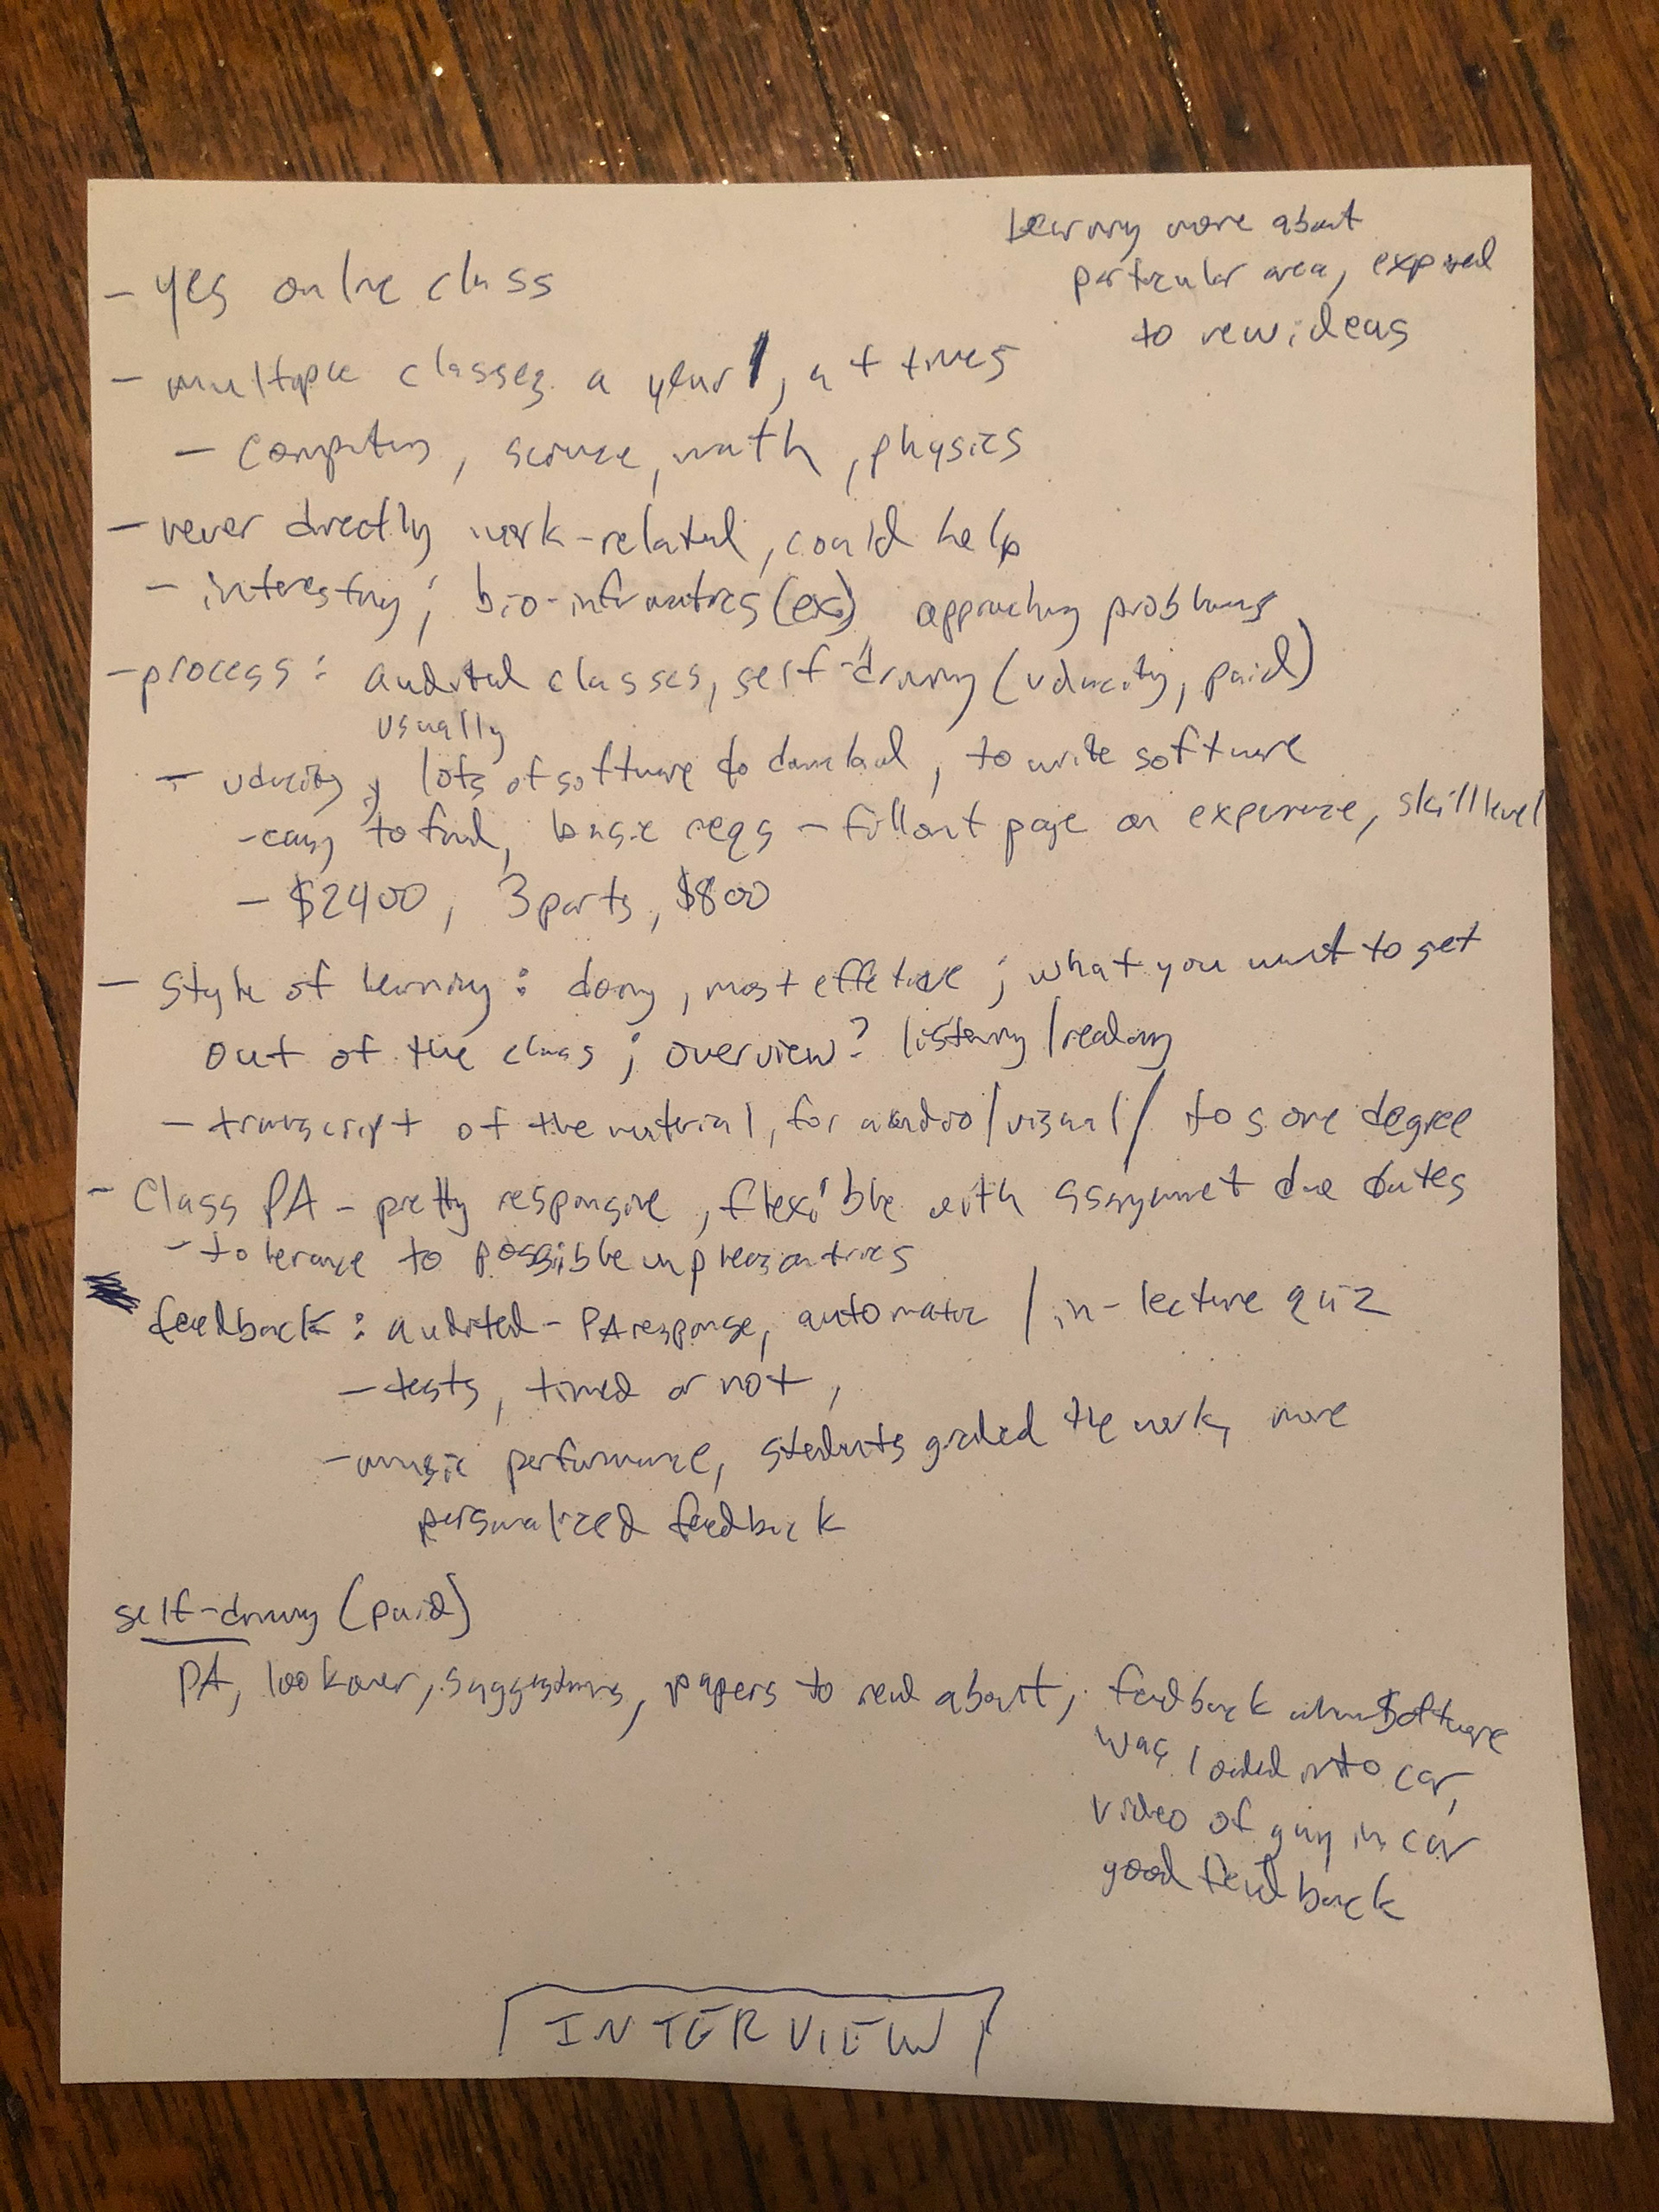 Learning more about
particular area, exposed
to new ideas
- yes online class
- multiple classes a year, at times
- computers, science, math, physics
- never directly work-related, could help
- interesting; bio-informatics (ex) approaching problems
- process: audited classes, self-driving (udacity, paid)
usually
- udacity, lots of software to download, to write software
- easy to find, basic reqs - fill out page on experience, skill level
- $2400, 3 parts, $800
- style of learning: doing, most effective; what you want to get
out of the class; overview? listening/reading
- transcript of the material, for audio/visual/ to some degree
- Class PA - pretty responsive, flexible with assignment due dates
- tolerance to possible unpleasantries
feedback: audited - PA response, automatic / in-lecture quiz
- tests, timed or not,
- music performance, students graded the work, more
personalized feedback
self-driving (paid)
PA, look over, suggestions, papers to read about, feedback when software
was loaded into car,
video of guy in car
good feedback
INTERVIEW